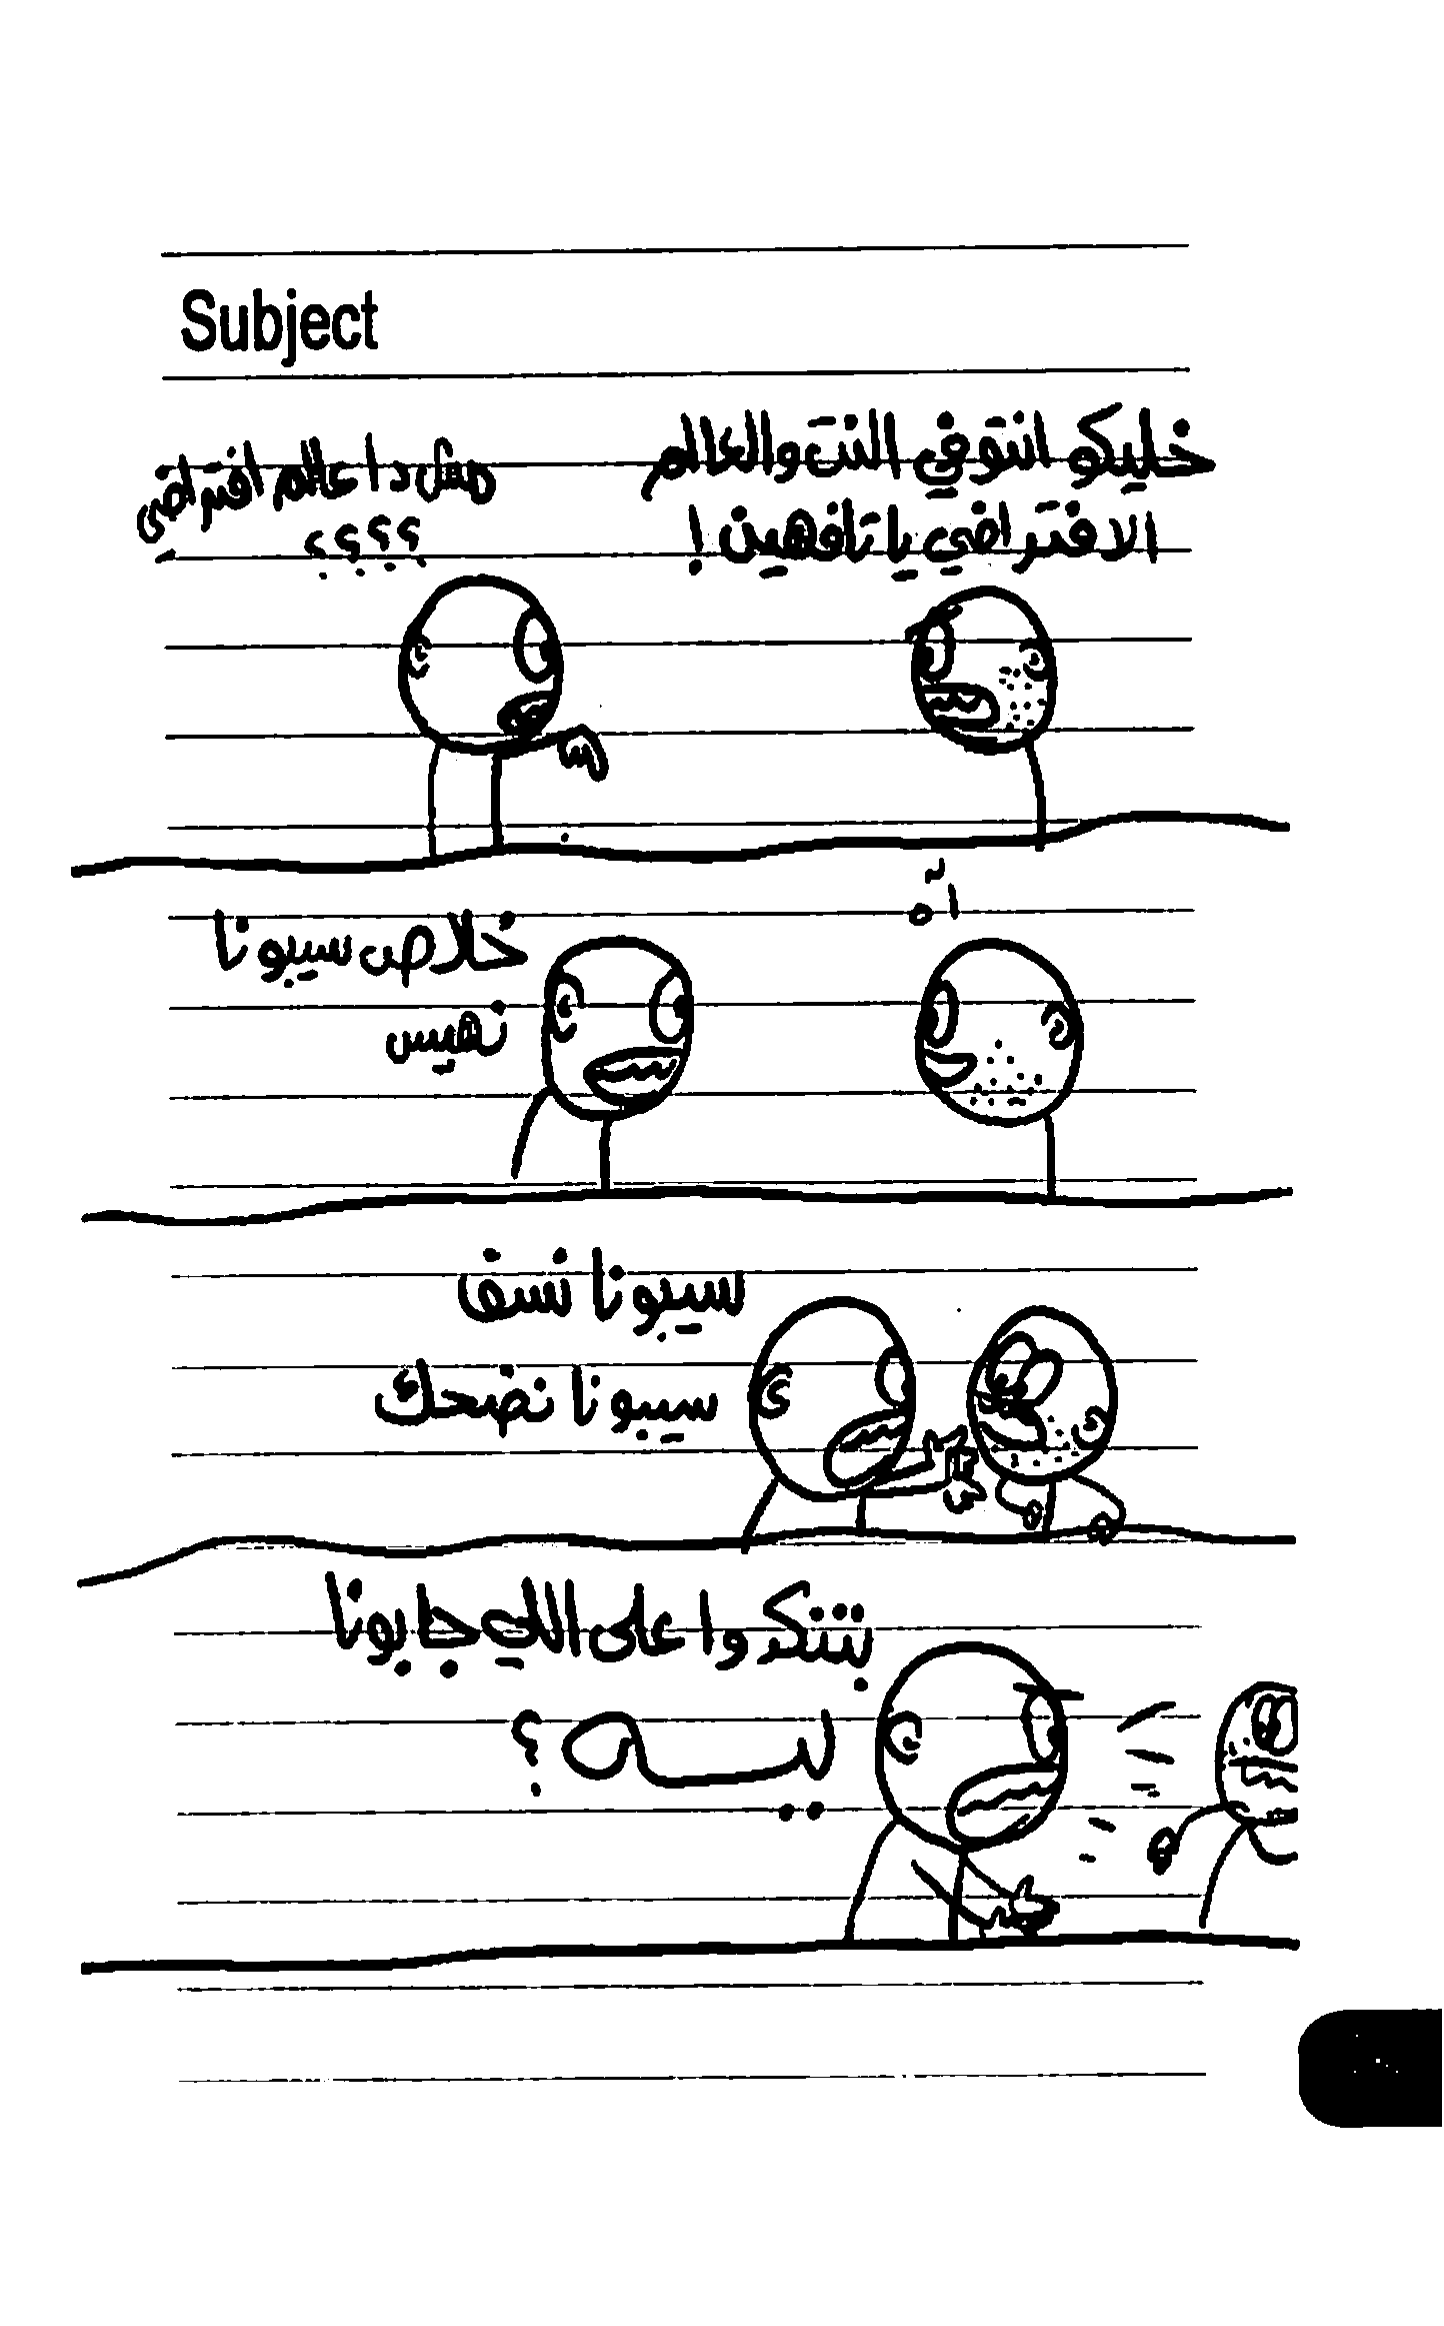 Subject
خليكو انتو في النت والعالم
الافتراضي يا تافهين !
مش دا عالم افتراضي
؟؟؟؟
آه
خلاص سيبونا
نهيس
سيبونا نسف
سيبونا نضحك
بتنكدوا على اللي جابونا
ليـــه ؟